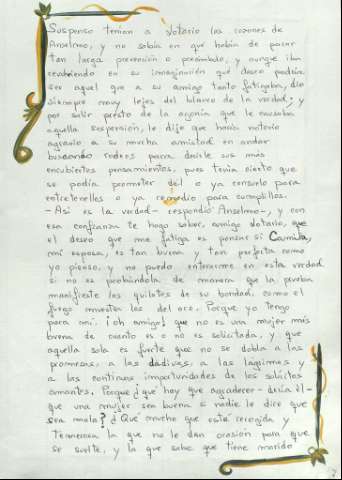 Suspenso tenian a Lotario las razones de
Anselmo, y no sabia en qué habia de parar
tan larga prevención o preámbulo, y aunque iba
revolviendo en su imaginación qué deseo podria
ser aquel que a su amigo tanto fatigaba, dio
siempre muy lejos del blanco de la verdad; y
por salir presto de la agonia que le causaba
aquella suspensión, le dijo que hacia notorio
agravio a su mucha amistad en andar
buscando rodeos para decirle sus más
encubiertos pensamientos, pues tenia cierto que
se podia prometer del o ya consejo para
entretenellos o ya remedio para cumplillos.
-Asi es la verdad- respondió Anselmo-, y con
esa confianza te hago saber, amigo Lotario, que
el deseo que me fatiga es pensar si Camila,
mi esposa, es tan buena y tan perfeta como
yo pienso, y no puedo enterarme en esta verdad
si no es probándola de manera que la prueba
manifieste los quilates de su bondad, como el
fuego muestra los del oro. Porque yo tengo
para mi ¡oh amigo! que no es una mujer más
buena de cuanto es o no es solicitada, y que
aquella sola es fuerte que no se dobla a las
promesas, a las dádivas, a las lágrimas y
a las continuas importunidades de los solicitos
amantes. Porque ¿qué hay que agradecer -decia él-
que una mujer sea buena si nadie le dice que
sea mala? ¿Qué mucho que esté recogida y
temerosa la que no le dan ocasión para que
se suelte, y la que sabe que tiene marido